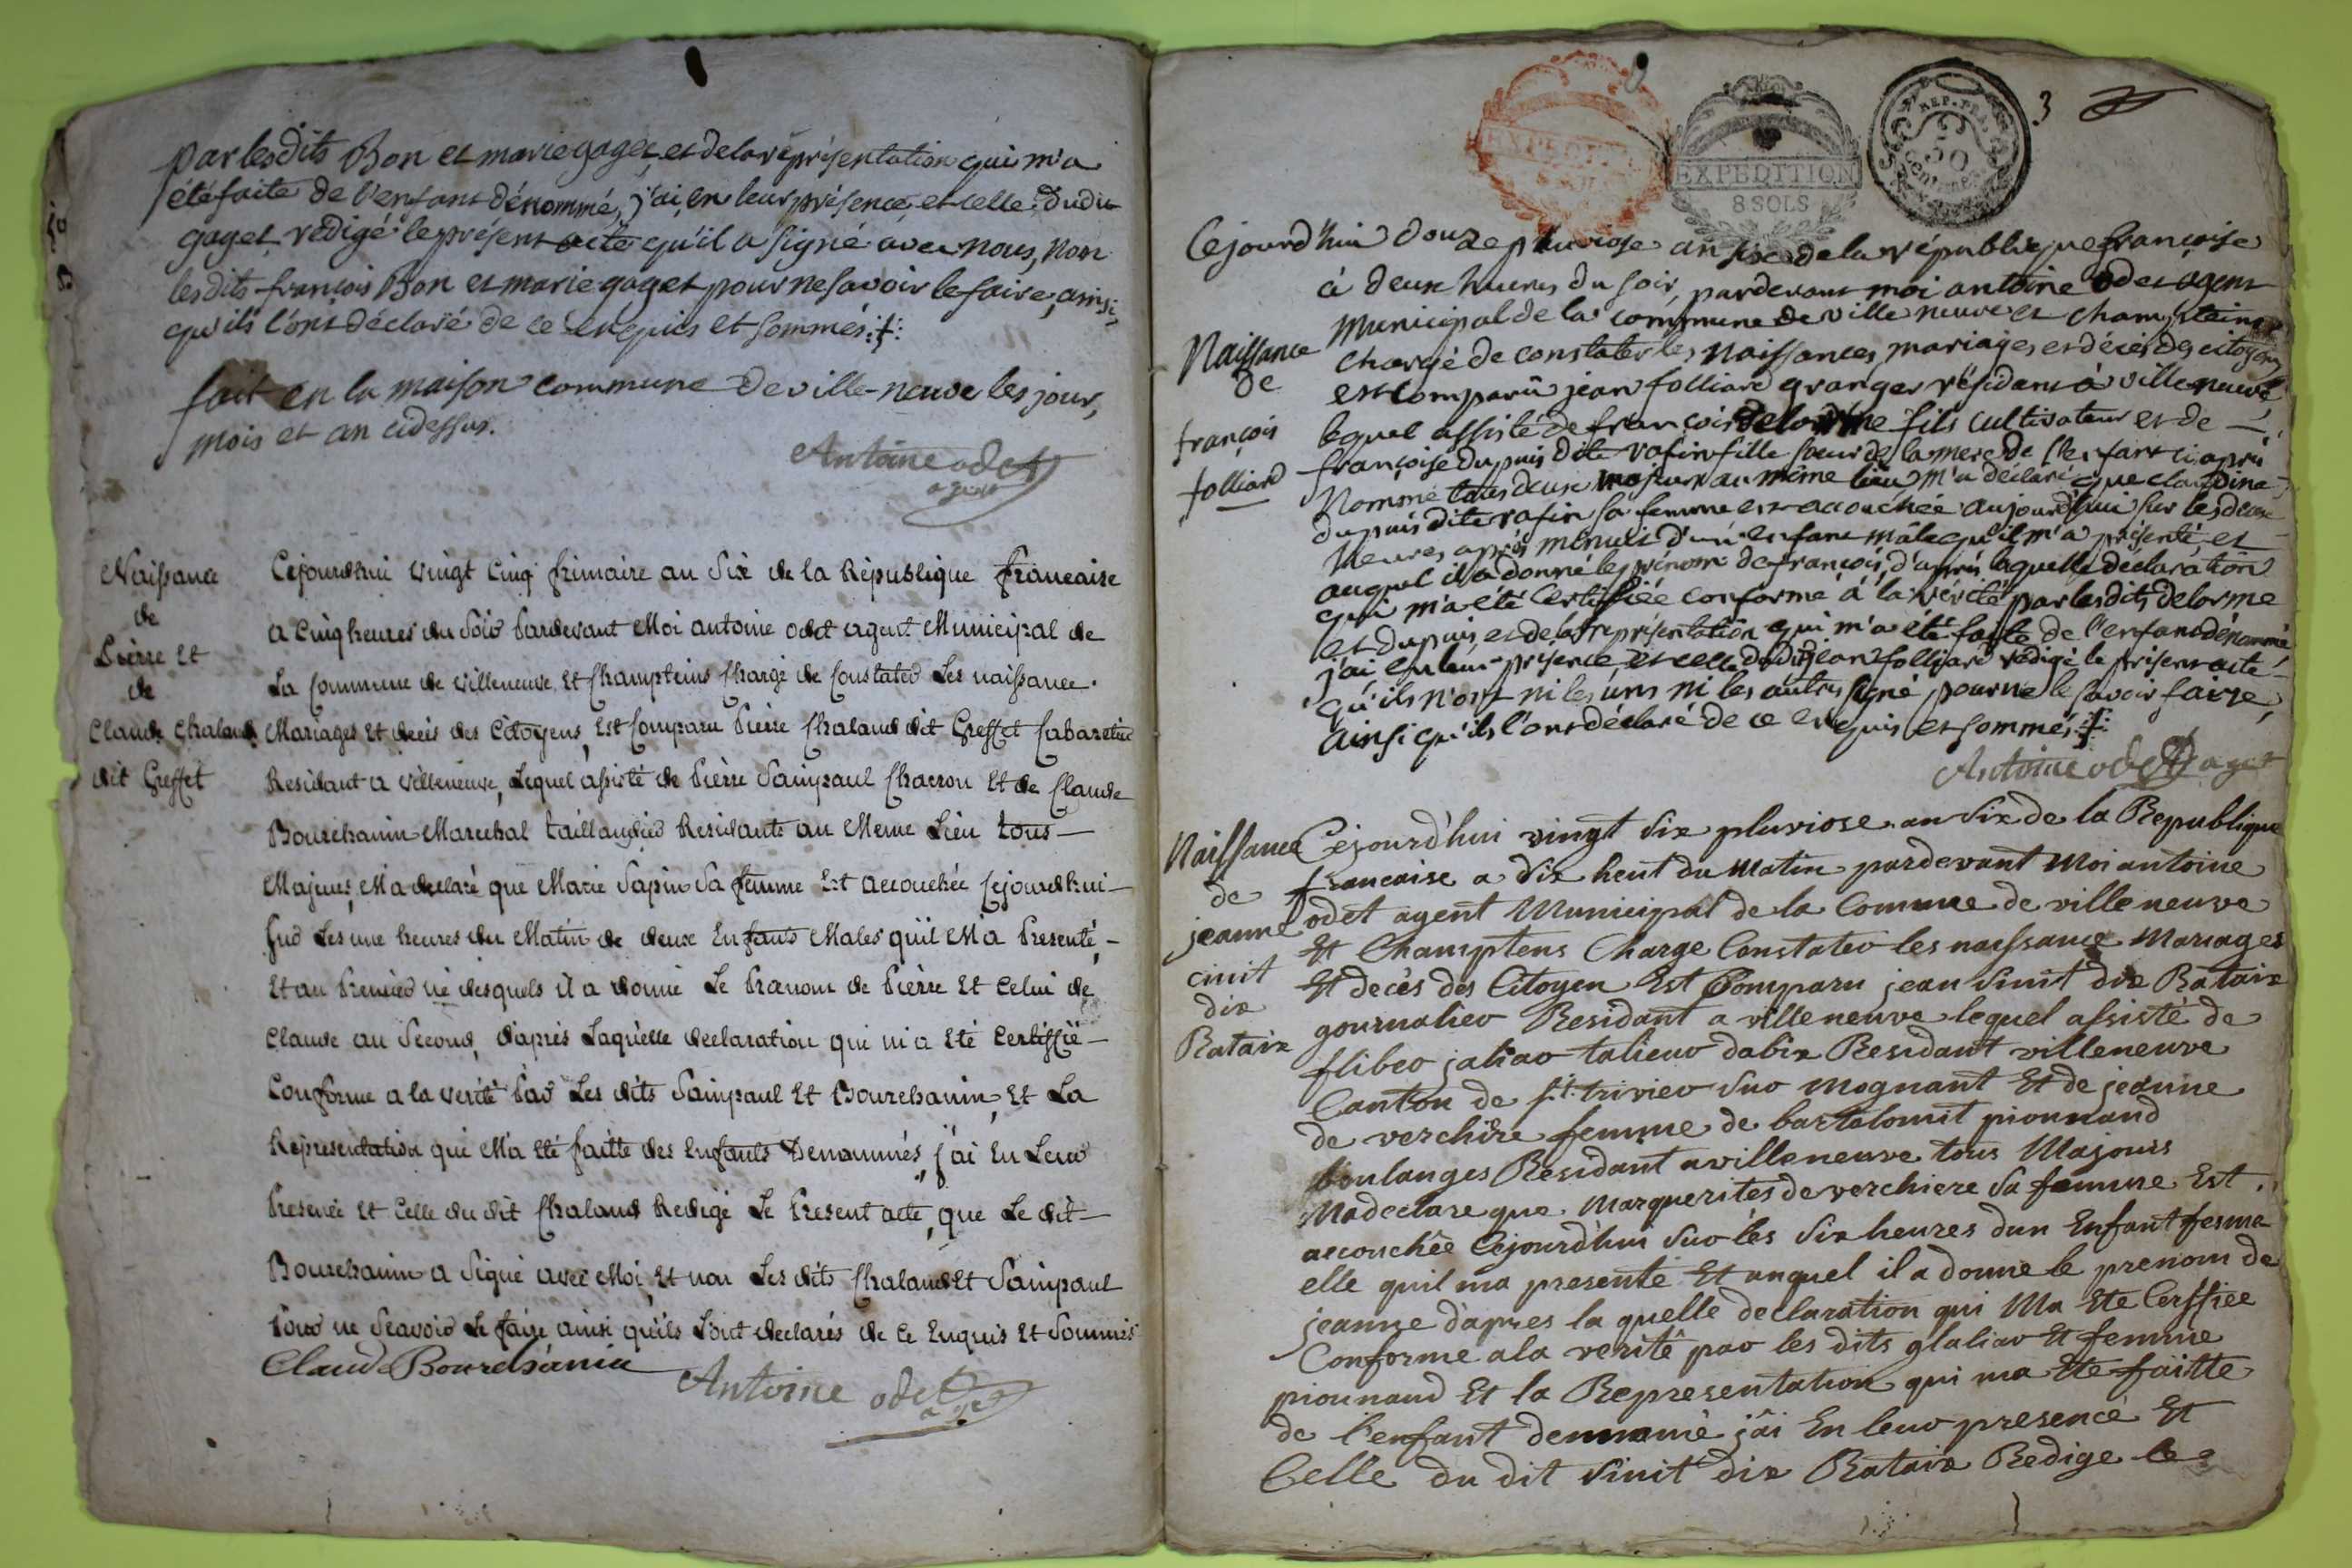 par lesdits Bon et marie gaget, et de la représentation qui m'a
été faite de l'enfant dénommé, j'ai, en leur présence, et celle dudit
gaget, rédigé le présent acte qu'il a signé avec nous, non
lesdits françois Bon et marie gaget pour ne savoir le faire, ainsi
qu'ils l'ont déclaré de ce enquis et sommés
fait en la maison commune de ville-neuve les jour,
mois et an cidessus.
Antoine odet
agent
Naissance
de
Pierre Et
de
Claude Chaland
dit Greffet
Cejourdhui vingt Cinq frimaire an Six de la République francaise
a Cinq heures du Soir Pardevant Moi antoine odet agent Municipal de
La Commune de villeneuve Et Champteins Chargé de Constater Les naissance
Mariages Et décés des Citoyens, Est Comparu Pierre Chaland dit Greffet Cabaretier
Residant a villeneuve, Lequel assisté de Pierre Sainpaul Charron Et de Claude
Bourchanin Marechal taillandier Residants au Meme Lieu tous
Majeurs, M'a declaré que Marie Sapin Sa femme Est accouchée Cejourdhui
Sur Les une heures du Matin de deux Enfants Males quil M'a Presenté,
Et au Premier né desquels il a donné Le Pranom de Pierre Et Celui de
Claude au Second, d'aprés Laquelle declaration qui m'a Eté Certiffié
Conforme a la verité Par Les dits Sainpaul Et Bourchanin, Et La
Représentation qui M'a Eté faitte des Enfants Denommés, j'ai En Leur
Presence Et Celle du dit Chaland Redigé Le Present acte, que Le dit
Bourchanin a Signé avec Moi Et non Les dits Chaland Et Sainpaul
Pour ne Sçavoir Le faire ainsi qu'ils L'ont declarés de Ce Enquis Et Sommés
Claude Bourchanin
Antoine odet
agent
EXPEDITION
8 SOLS
REP. FRA.
50
Centimes
3
Cejourd'hui douze pluviose an Six de la république françoise
à deux heures du soir, pardevant moi antoine odet agent
municipal de la commune de ville neuve et champteins
Naissance
de
françois
folliard
chargé de constater les naissances, mariages et décès des citoyens
est comparû jean folliard granger résidant à ville neuve,
lequel assisté de françois delorme fils cultivateur et de
françoise dupuis dite rafin fille sœur de la mere de l'enfant ci après
nommé tous deux majeurs au même lieu m'a déclaré que claudine
dupuis dite rafin sa femme est accouchée aujourd'hui sur les deux
heures après minuit d'un enfant mâle qu'il m'a présenté, et
auquel il a donné le prénom de françois, d'après laquelle déclaration
qui m'a été certifiée conforme à la vérité par lesdits delorme
et dupuis, et de la représentation qui m'a été faite de l'enfant dénommé
j'ai en leur présence et celle dudit jean folliard rédigé le présent acte
qu'ils n'ont ni les uns ni les autres signé pour ne le savoir faire,
ainsi qu'ils l'ont déclaré de ce enquis et sommés
Antoine odet agent
Naissance
de
jeanne
cinit
dix
Rataix
Cejourd'hui vingt Six pluviose an Six de la Republique
francaise a dix heut du Matin pardevant Moi antoine
odet agent Municipal de la Commune de villeneuve
Et Champtens Charge Constater les naissance Mariages
Et decès des Citoyen Est Comparu jean Sinit dix Rataix
gournalier Residant a villeneuve lequel assisté de
flibeo jaliao talieur dabix Residant villeneuve
Canton de st trivier Sur Mognant Et de jeanne
de verchère femme de bartelomit pionnand
boulanges Residant a villeneuve tous Majours
Madeclare que Marguerites de verchiere Sa femme Est
accouchêe Cejourd'hui Sur les Six heures dun Enfant feme
elle quil ma presente Et auquel il a donne le prenom de
jeanne d'apres la quelle declaration qui Ma Ete Cerffiee
Conforme ala verité par les dits glaliao Et femme
pionnand Et la Representation qui ma Ete faitte
de l'enfant dennomé j'ai En leur presence Et
Celle du dit Sinit dix Rataix Redige le